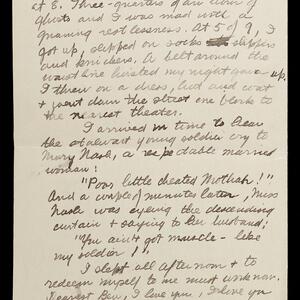 at E. Three-quarters of an hour of
ghosts and I was mad with a
gnawing restlessness. At 5 of 9, I
got up, slipped on socks slippers
and knickers. A belt around the
waist line hoisted my night gown up.
I threw on a dress, hat and coat
+ went down the street one block to
the nearest theater.
I arrived in time to hear
the stalwart young soldier cry to
Mary Nash, a respectable married
woman:
"Poor little cheated Mothah!"
And a couple of minutes later, Miss
Nash was eyeing the descending
curtain + saying to her husband,
"You ain't got muscle - like
my soldier!"
I slept all afternoon + to
redeem myself to me must work now.
Dearest Ben, I love you, I love you